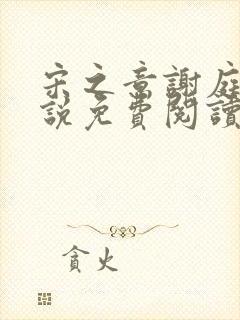 宋之章謝庭
說免費閱讀
貪火